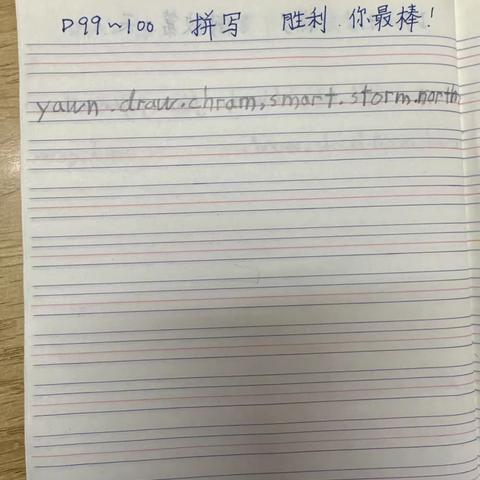 D99~100 拼写 胜利.你最棒!
yawn.draw.chram,smart.storm.north